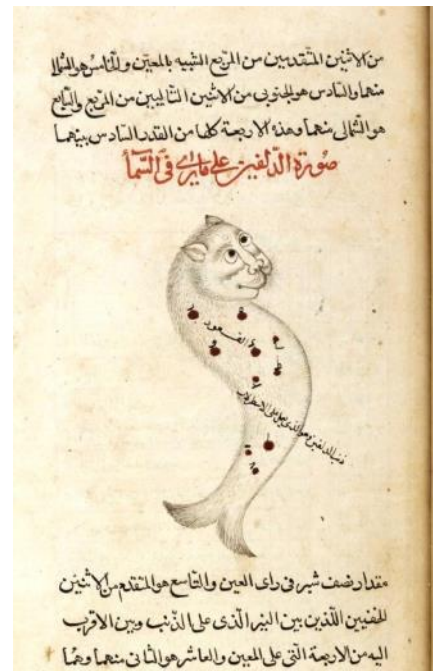 من الاثنين المتقدمين من المربع الشبيه بالمعين والخامس هو الشمالي
منهما والسادس هو الجنوبي من الاثنين التاليين من المربع والسابع
هو الشمالي منهما وهذه الاربعة كلها من القدر السادس بينهما
صورة الدلفين على ما يرى في السما
القعود
ذنب الدلفين وهو الذي على الاسطرلاب
مقدار نصف شبر في راى العين والتاسع هو المتقدم من الاثنين
الخفيين اللذين بين النير الذى على الذنب وبين الاقرب
اليه من الاربعة التى على المعين والعاشر هو الثانى منهما وهما